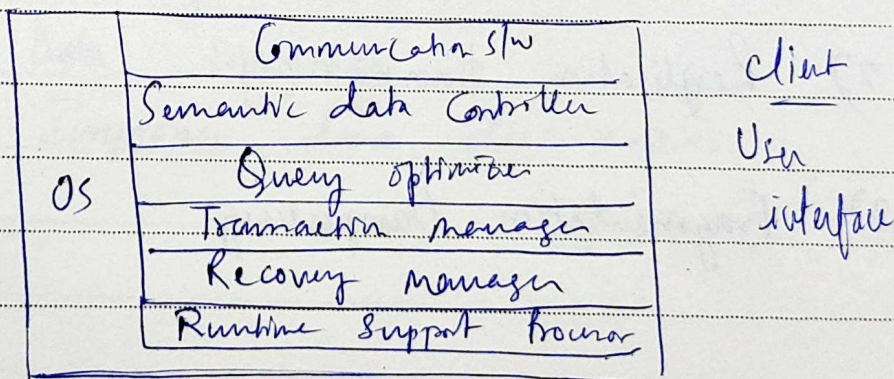 Communication s/w
Semantic data Controller
Query optimizer
Transaction manager
Recovery manager
Runtime Support Processor
OS
Client
User
interface